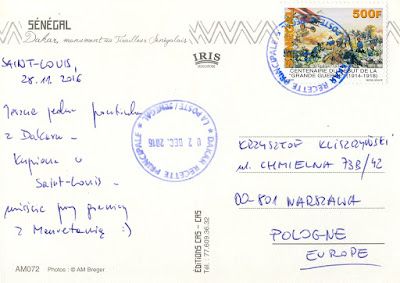 SÉNÉGAL
Dakar, monument des Tirailleurs Sénégalais
IRIS
SAINT-LOUIS,
28.11.2016
Jeszcze jedna pocztówka
z Dakaru –
Kupiona w
Saint-Louis –
miejsce przy granicy
z Mauretanią :)
AM072 Photos : © AM Breger
EDITIONS CAS - CAS
Tél : 77.609.96.32
SENEGAL
500F
CENTENAIRE DU DEBUT DE LA
"GRANDE GUERRE" (1914-1918)
DAKAR RECETTE PRINCIPALE
LA POSTE / SN EMS
02 DEC. 2016
DAKAR RECETTE PRINCIPALE
KRZYSZTOF KLISZCZYŃSKI
ul. CHMIELNA 73B/42
00-801 WARSZAWA
POLOGNE
EUROPE